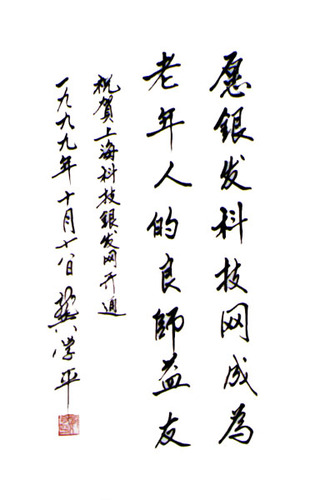 愿银发科技网成为
老年人的良師益友
祝賀上海科技银发网开通
一九九九年十月十八日 龚学平